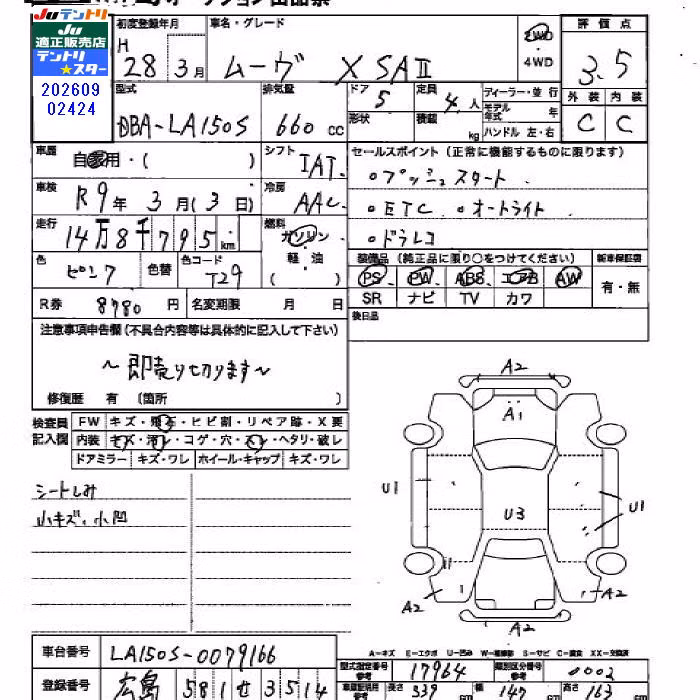 JUテントリ オークション出品票
JU
適正販売店
テントリ
★スター
202609
02424
初度登録年月 車名・グレード 2WD 評価点
H 28 3月 ムーヴ X SAⅡ ・4WD 3.5
型式 排気量 ドア 5 定員 4人 ディーラー・並行 外装 内装
モデル年式 年
DBA-LA150S 660 cc 形状 積載 kg ハンドル 左・右 C C
車歴 自家用・( ) シフト IAT セールスポイント(正常に機能するものに限ります)
。プッシュスタート
車検 R9年 3月(3日) 冷房 AAC 。ETC 。オートライト
走行 14万8千795km 燃料 ガソリン 。ドラレコ
軽・油
( )
色 ピンク 色替 色コード T29 装備品(純正品に限り○をつけてください) 新車保証書
PS PW ABS エアB AW 有・無
R券 8780円 名変期限 月 日 SR ナビ TV カワ
後日品
注意事項申告欄(不具合内容等は具体的に記入して下さい)
~即売り切ります~
修復歴 有 (箇所 )
検査員 FW キズ・飛石・ヒビ割・リペア跡・X要
記入欄 内装 キズ・汚レ・コゲ・穴・スレ・ヘタリ・破レ
ドアミラー キズ・ワレ ホイール・キャップ キズ・ワレ
シートしみ
小キズ、小凹
A2
A1
U1
U3
U1
A2
A2
A2
車台番号 LA150S-0079166
登録番号 広島 581せ3514
A-キズ E-エクボ U-凹み W-補修跡 S-サビ C-腐食 XX-交換済
型式指定番号 17964 類別区分番号 0002
長さ 339 cm 幅 147 cm 高さ 163